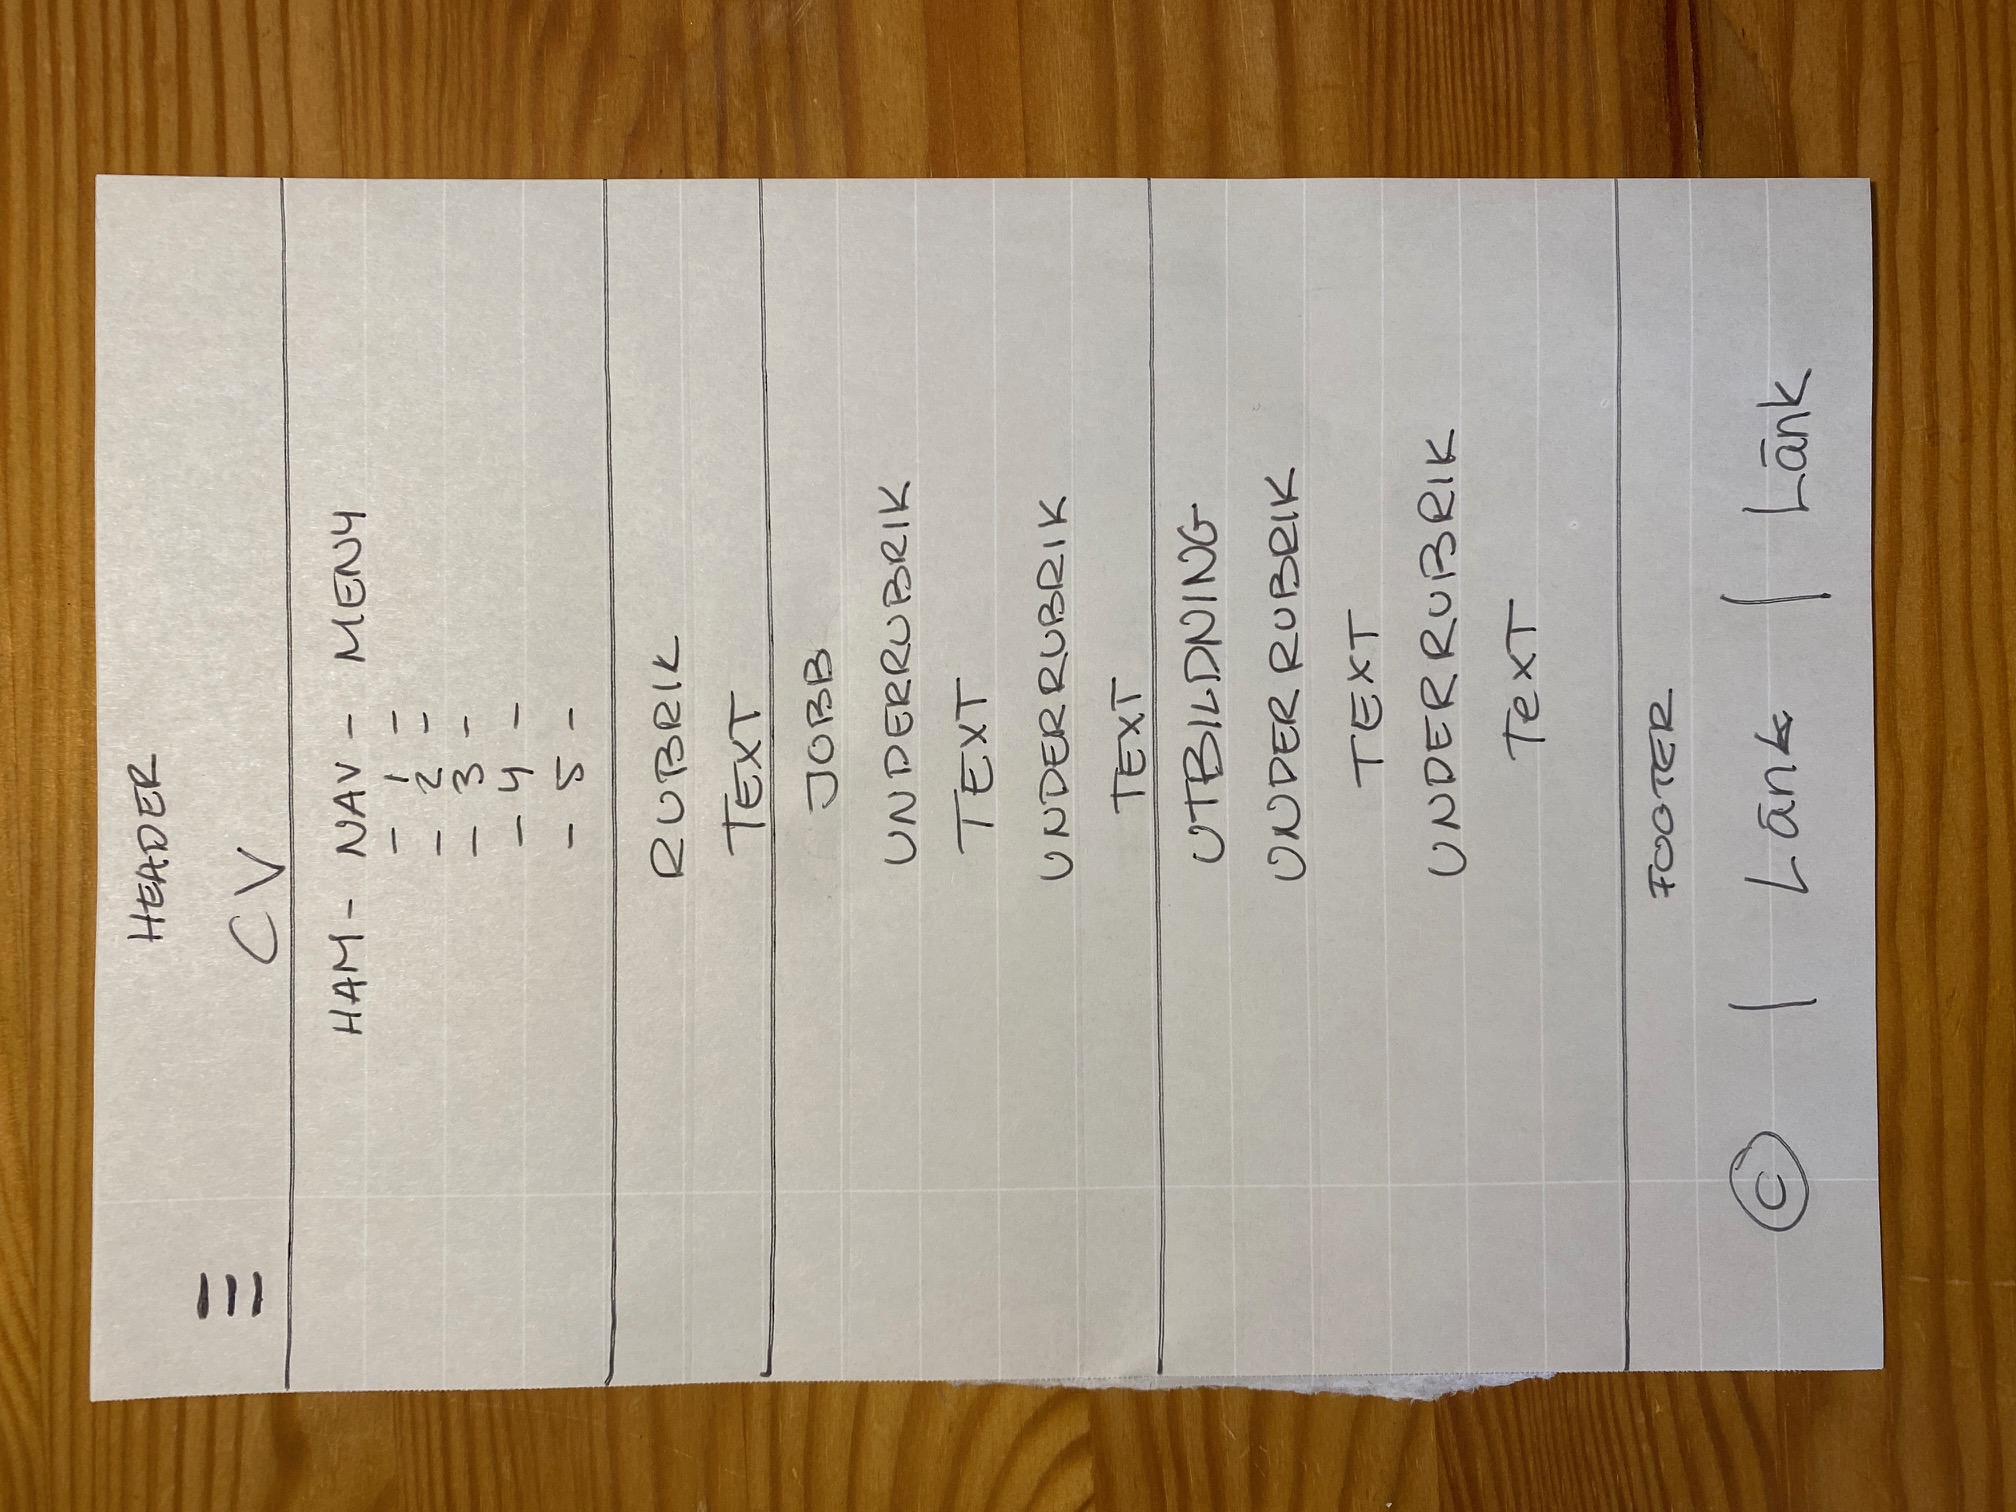 HEADER
CV
HAM- NAV - MENY
- 1 -
- 2 -
- 3 -
- 4 -
- 5 -
RUBRIK
TEXT
JOBB
UNDERRUBRIK
TEXT
UNDERRUBRIK
TEXT
UTBILDNING
UNDERRUBRIK
TEXT
UNDERRUBRIK
TeXT
FOOTER
© | Länk | Länk